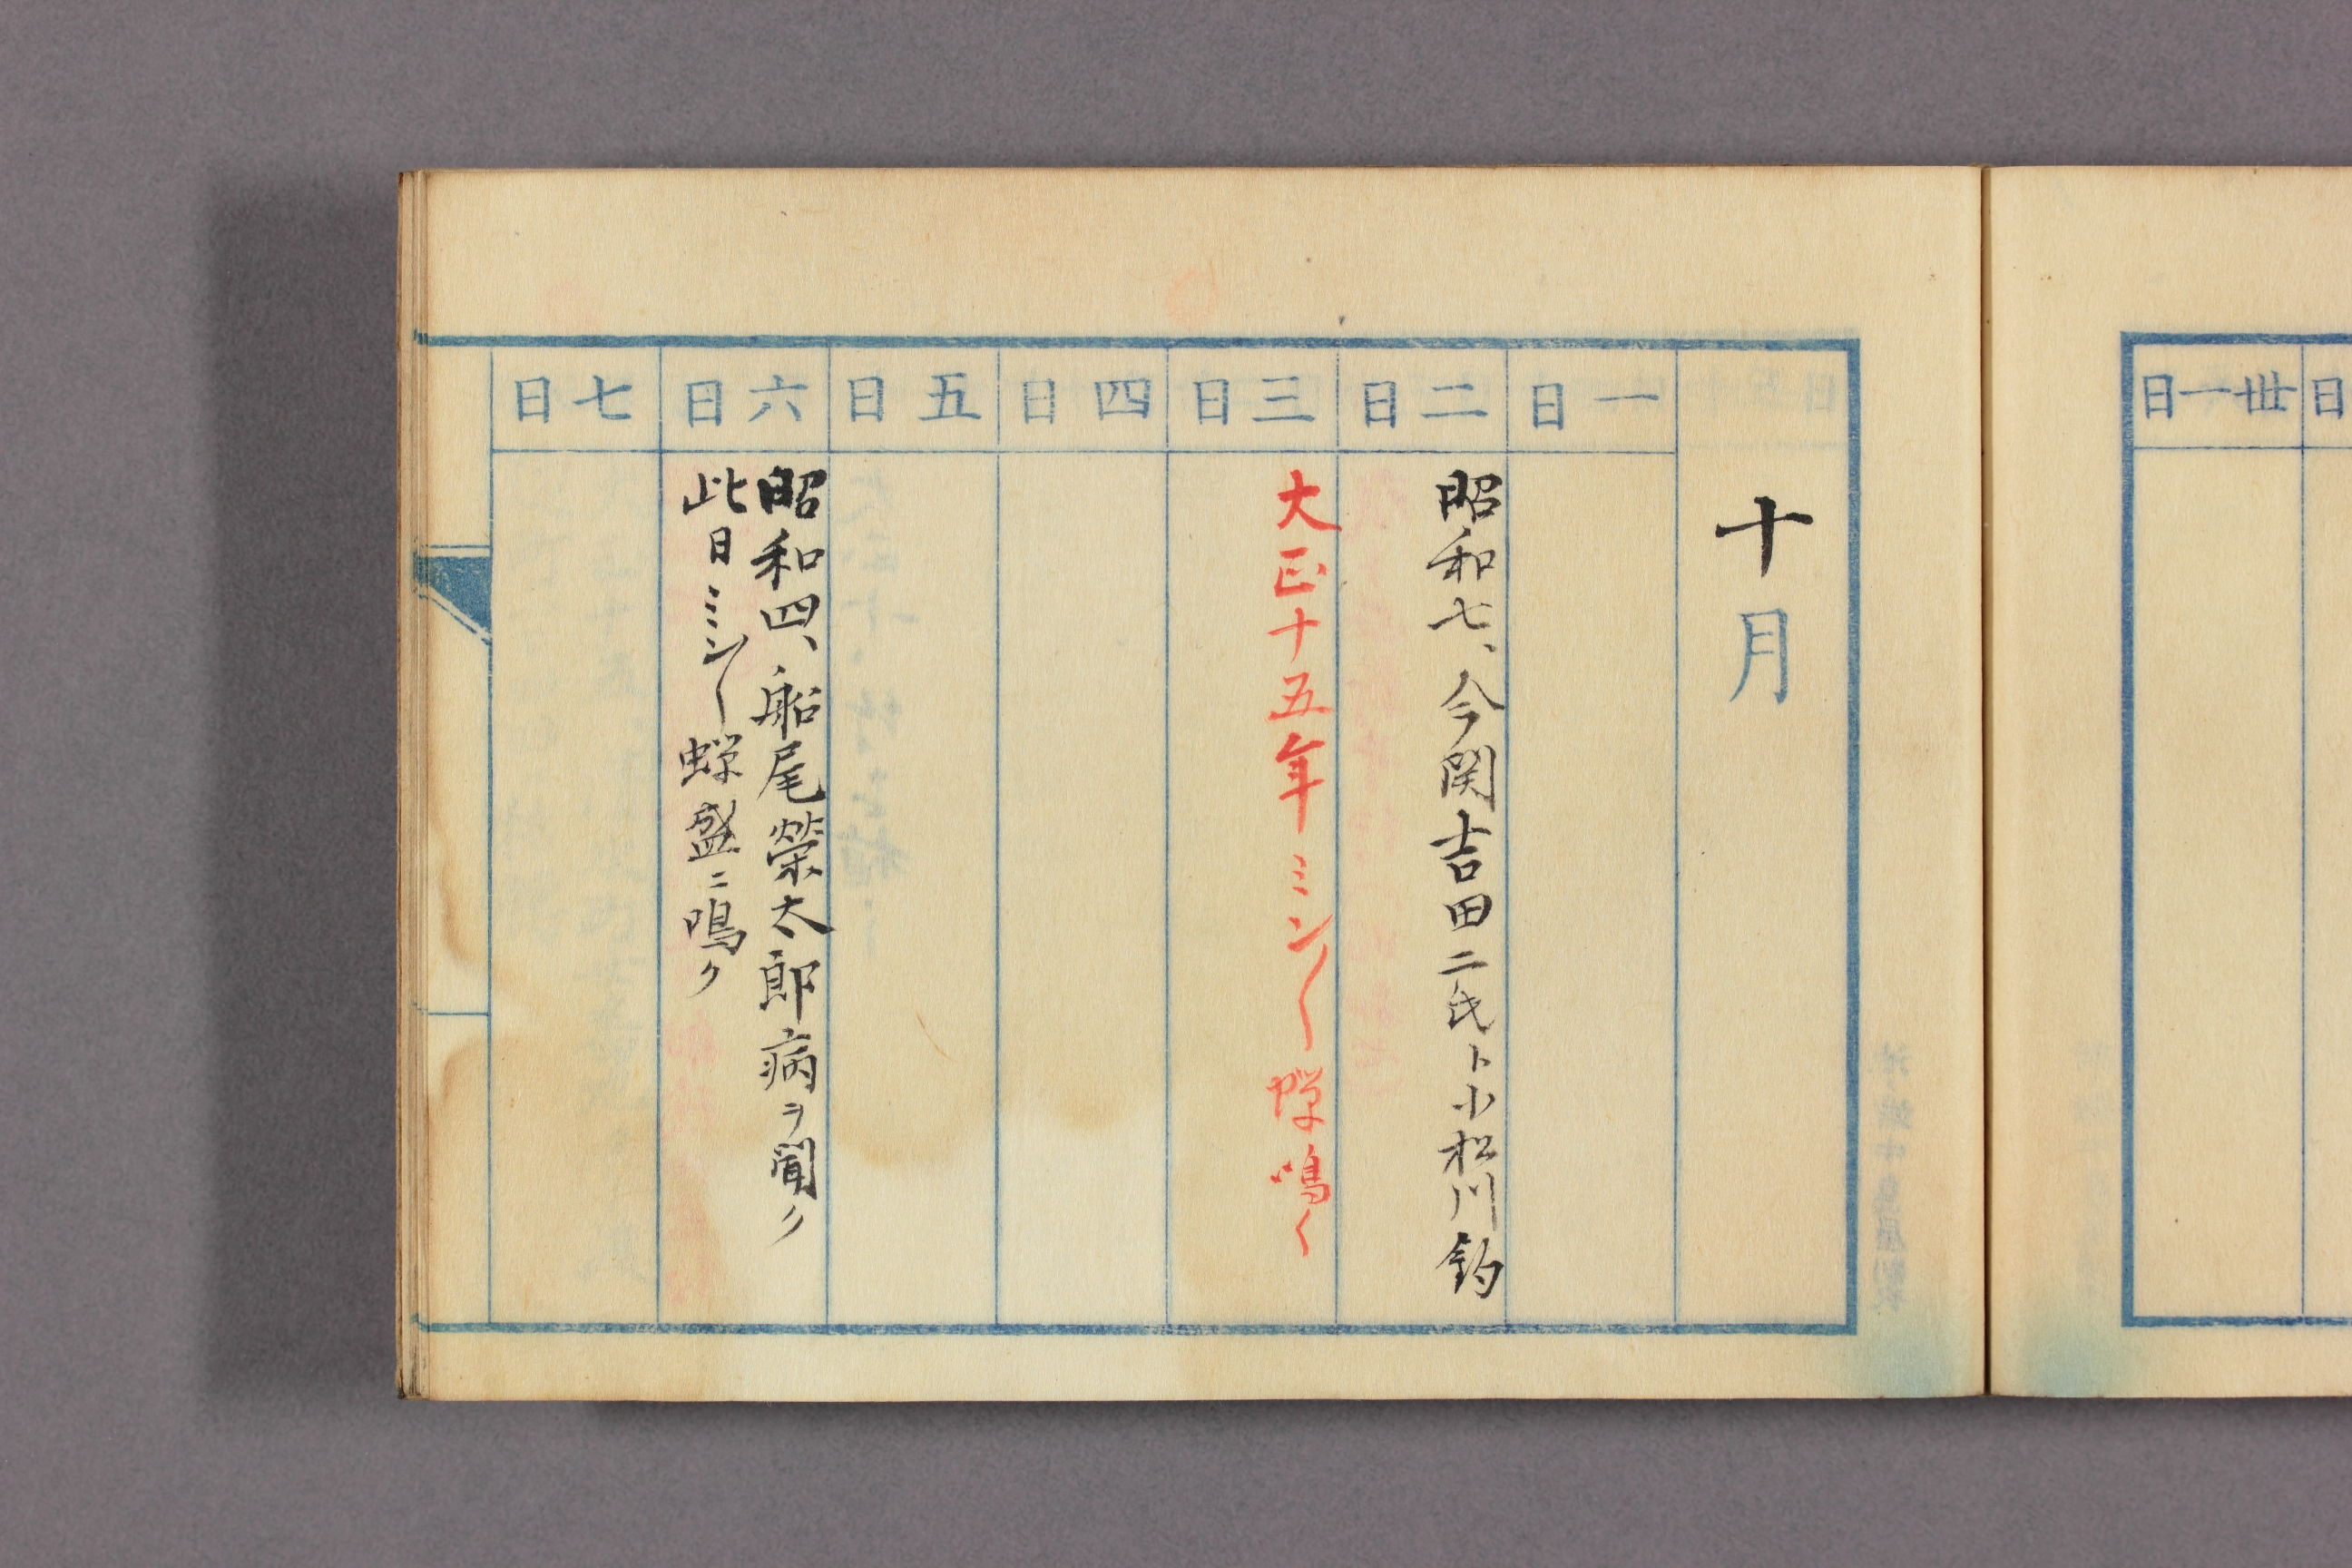 卅一日
日
十月
一日
二日
昭和七、今関吉田二氏ト小松川釣
三日
大正十五年ミン〱蝉鳴く
四日
五日
六日
昭和四、船尾榮太郎病ヲ聞ク
此日ミミン〱蝉盛ニ鳴ク
七日